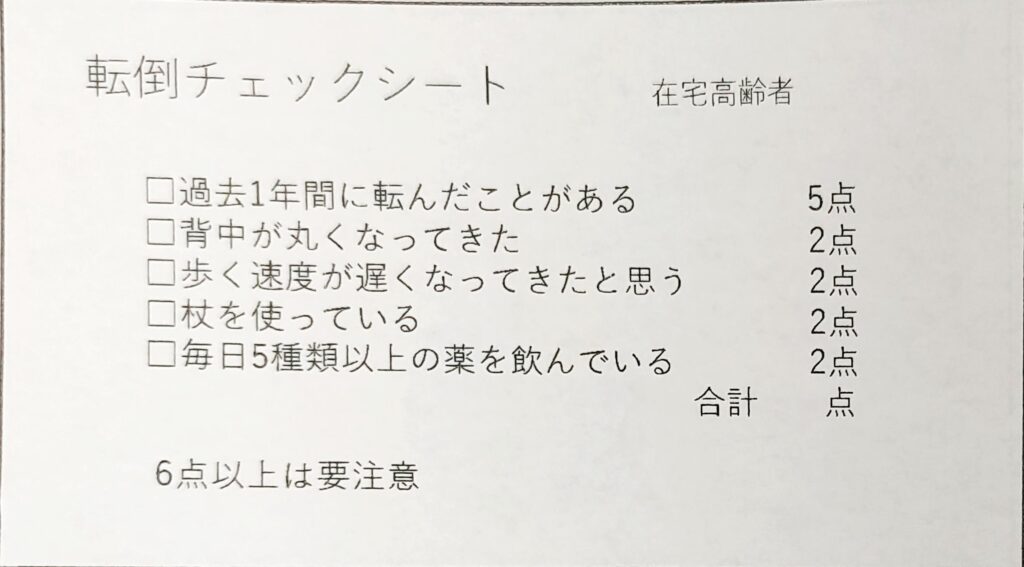 転倒チェックシート 在宅高齢者
□過去1年間に転んだことがある 5点
□背中が丸くなってきた 2点
□歩く速度が遅くなってきたと思う 2点
□杖を使っている 2点
□毎日5種類以上の薬を飲んでいる 2点
合計 点
6点以上は要注意